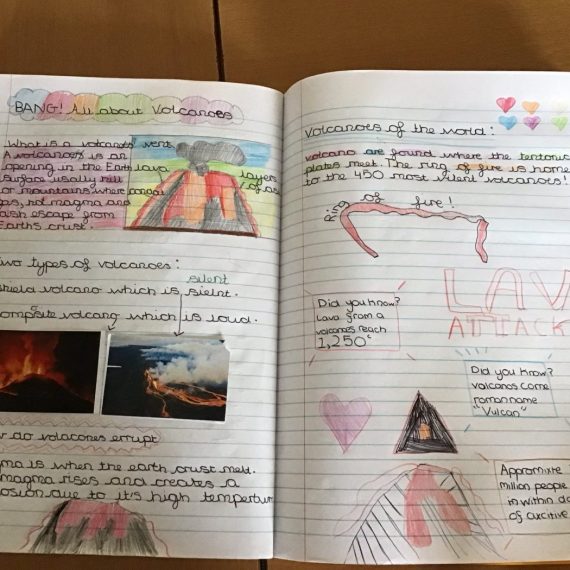 BANG! All about Volcanoes
What is a volcanoes vent
A volcanoes is an
opening in the Earth lava layers
surface usually hill of as
or mountains, where
gas, hot magma and
ash escape from
Earths crust.
two types of volcanoes:
silent
shield volcano which is sielnt.
composite volcano which is loud.
do volacones errupt
magma is when the earth crust melt.
magma rises and creates a
due to it's high tempertur
Volcanoes of the world:
volcano are found where the tentonic
plates meet. The ring of fire is home
to the 450 most vilent volcanois!
Ring of fire!
LAV
ATTACK
Did you know?
lava from a
volcanoes reach
1,250°
Did you know?
volcanos come
roman name
"Vulcan"
Appromixte
million people
in within da
of